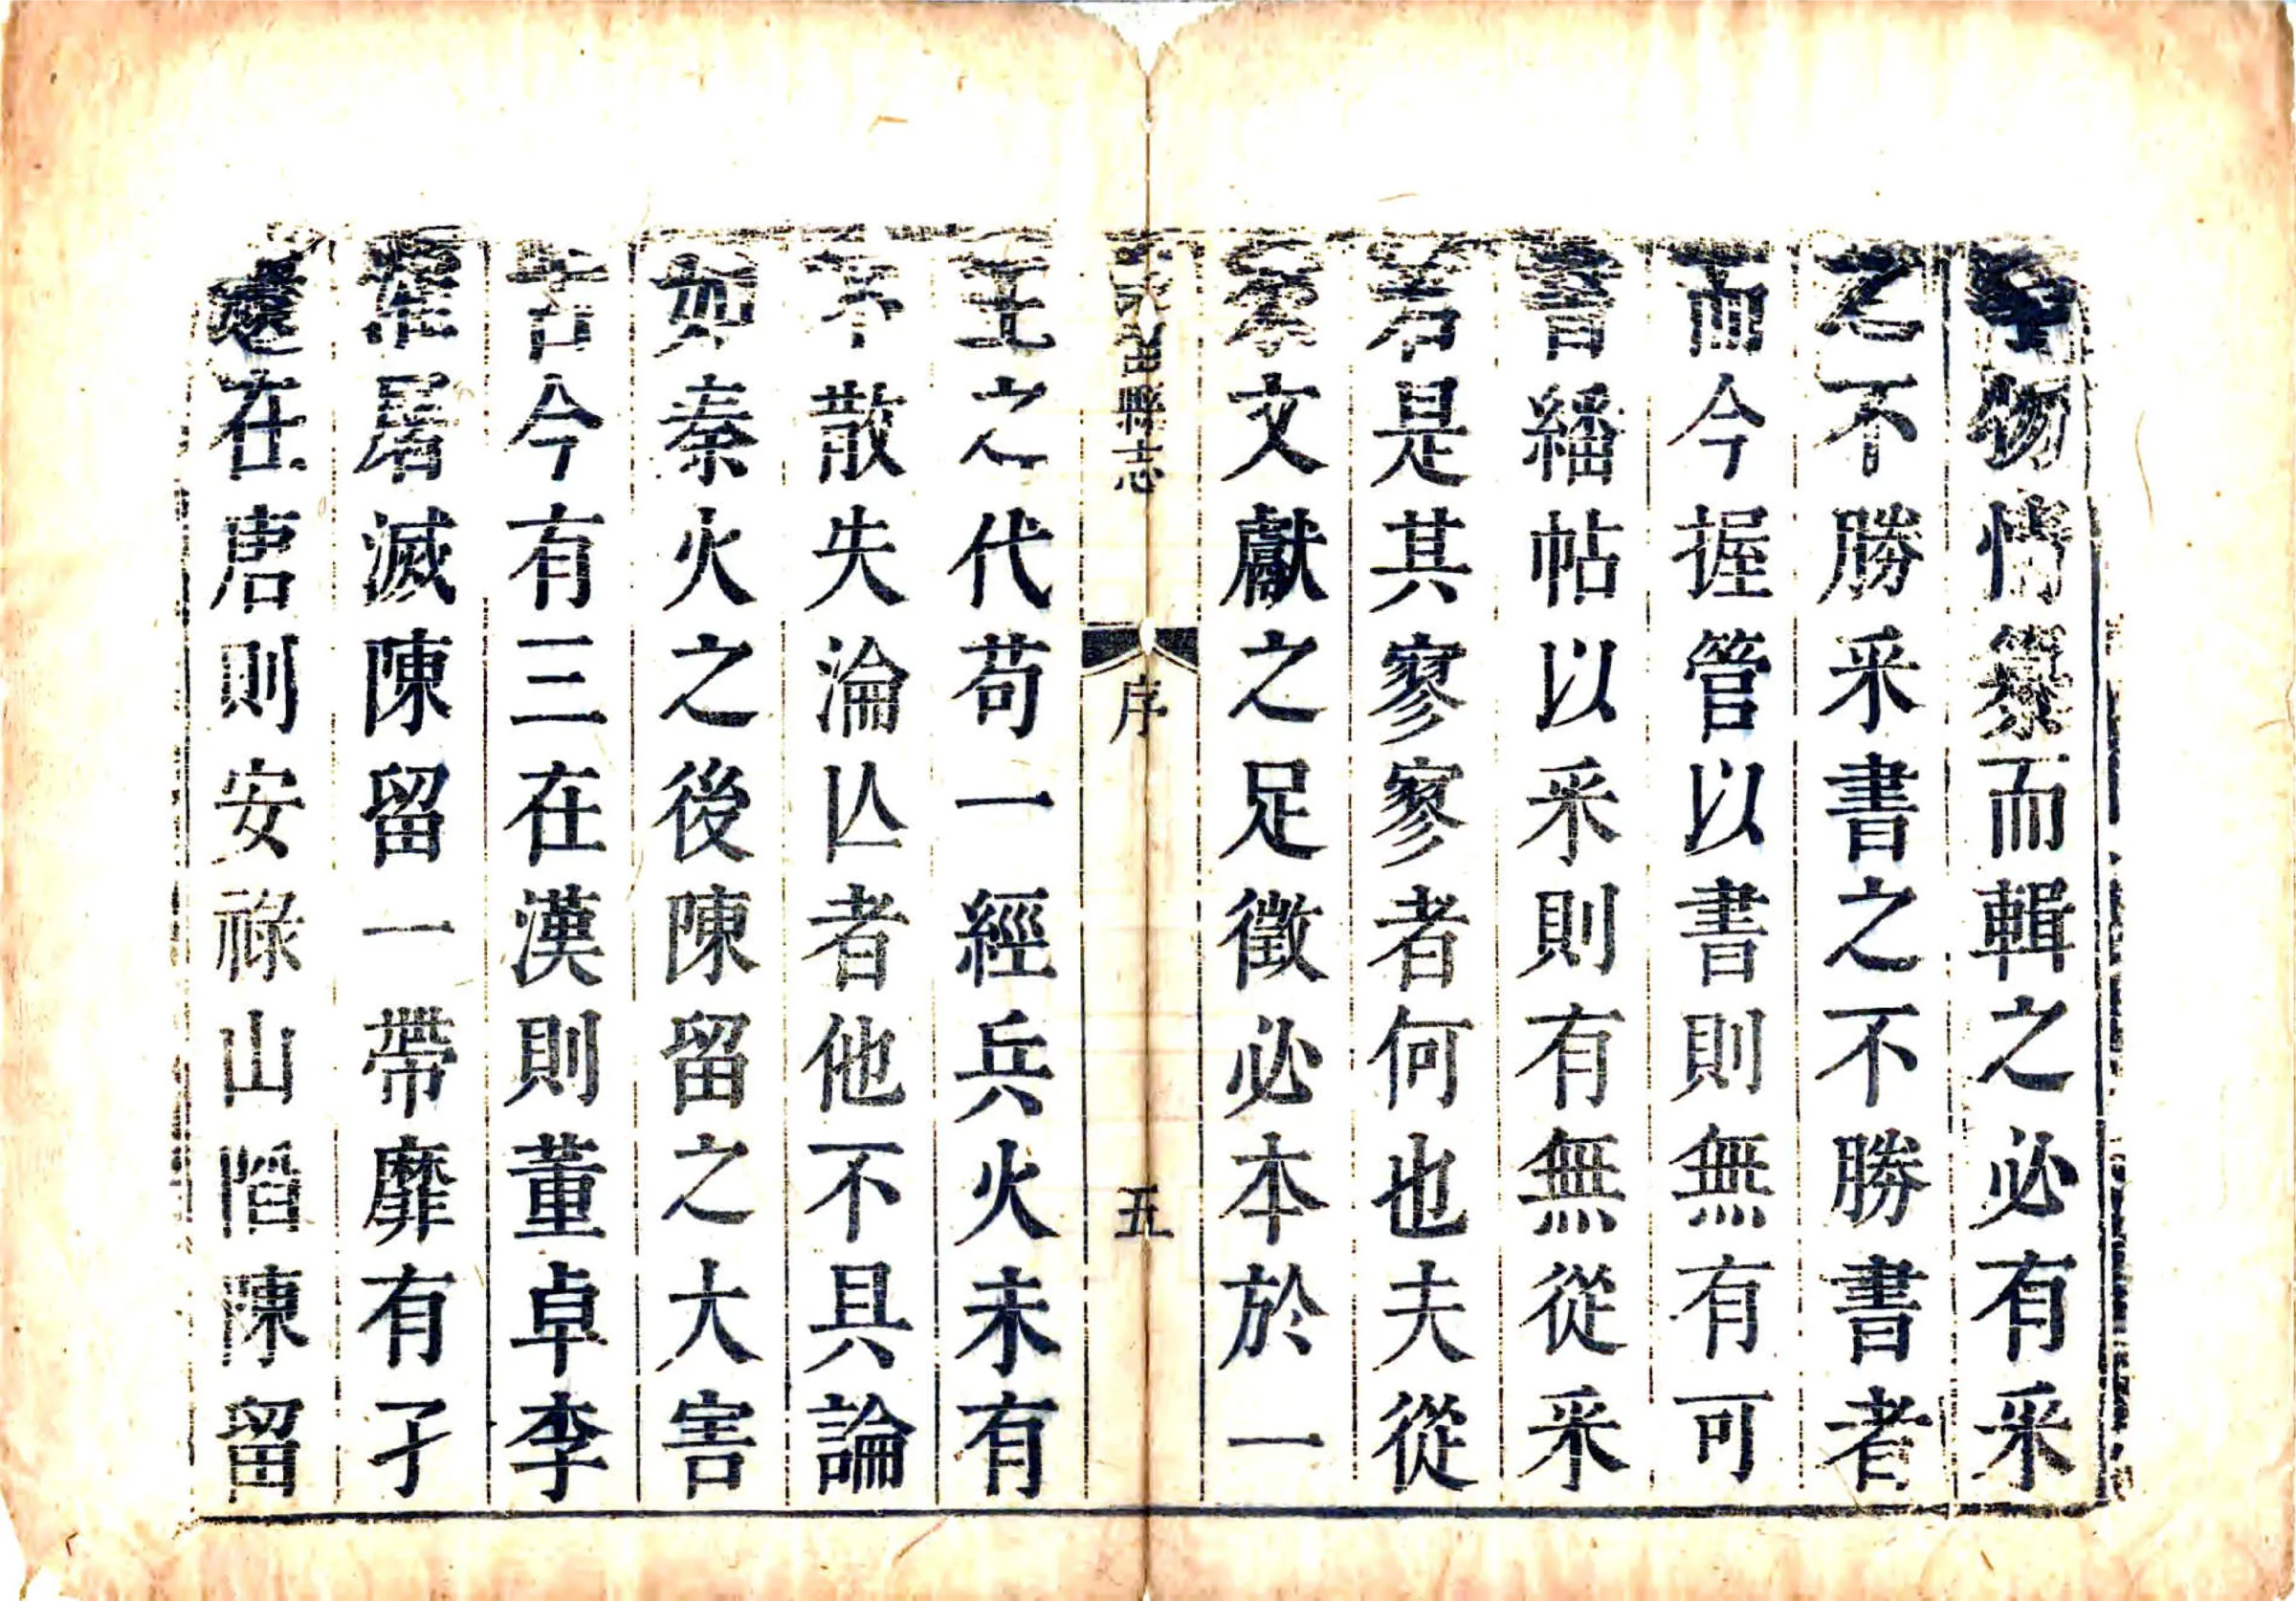 物情纂而輯之必有采
之不勝采書之不勝書者
而今握管以書則無有可
書繙帖以采則有無從采
若是其寥寥者何也夫從
來文獻之足徵必本於一
陳留縣志
序
五
王之代苟一經兵火未有
不散失淪亾者他不具論
如秦火之後陳留之大害
古今有三在漢則董卓李
傕屠滅陳留一帶靡有孑
遺在唐則安祿山陷陳留